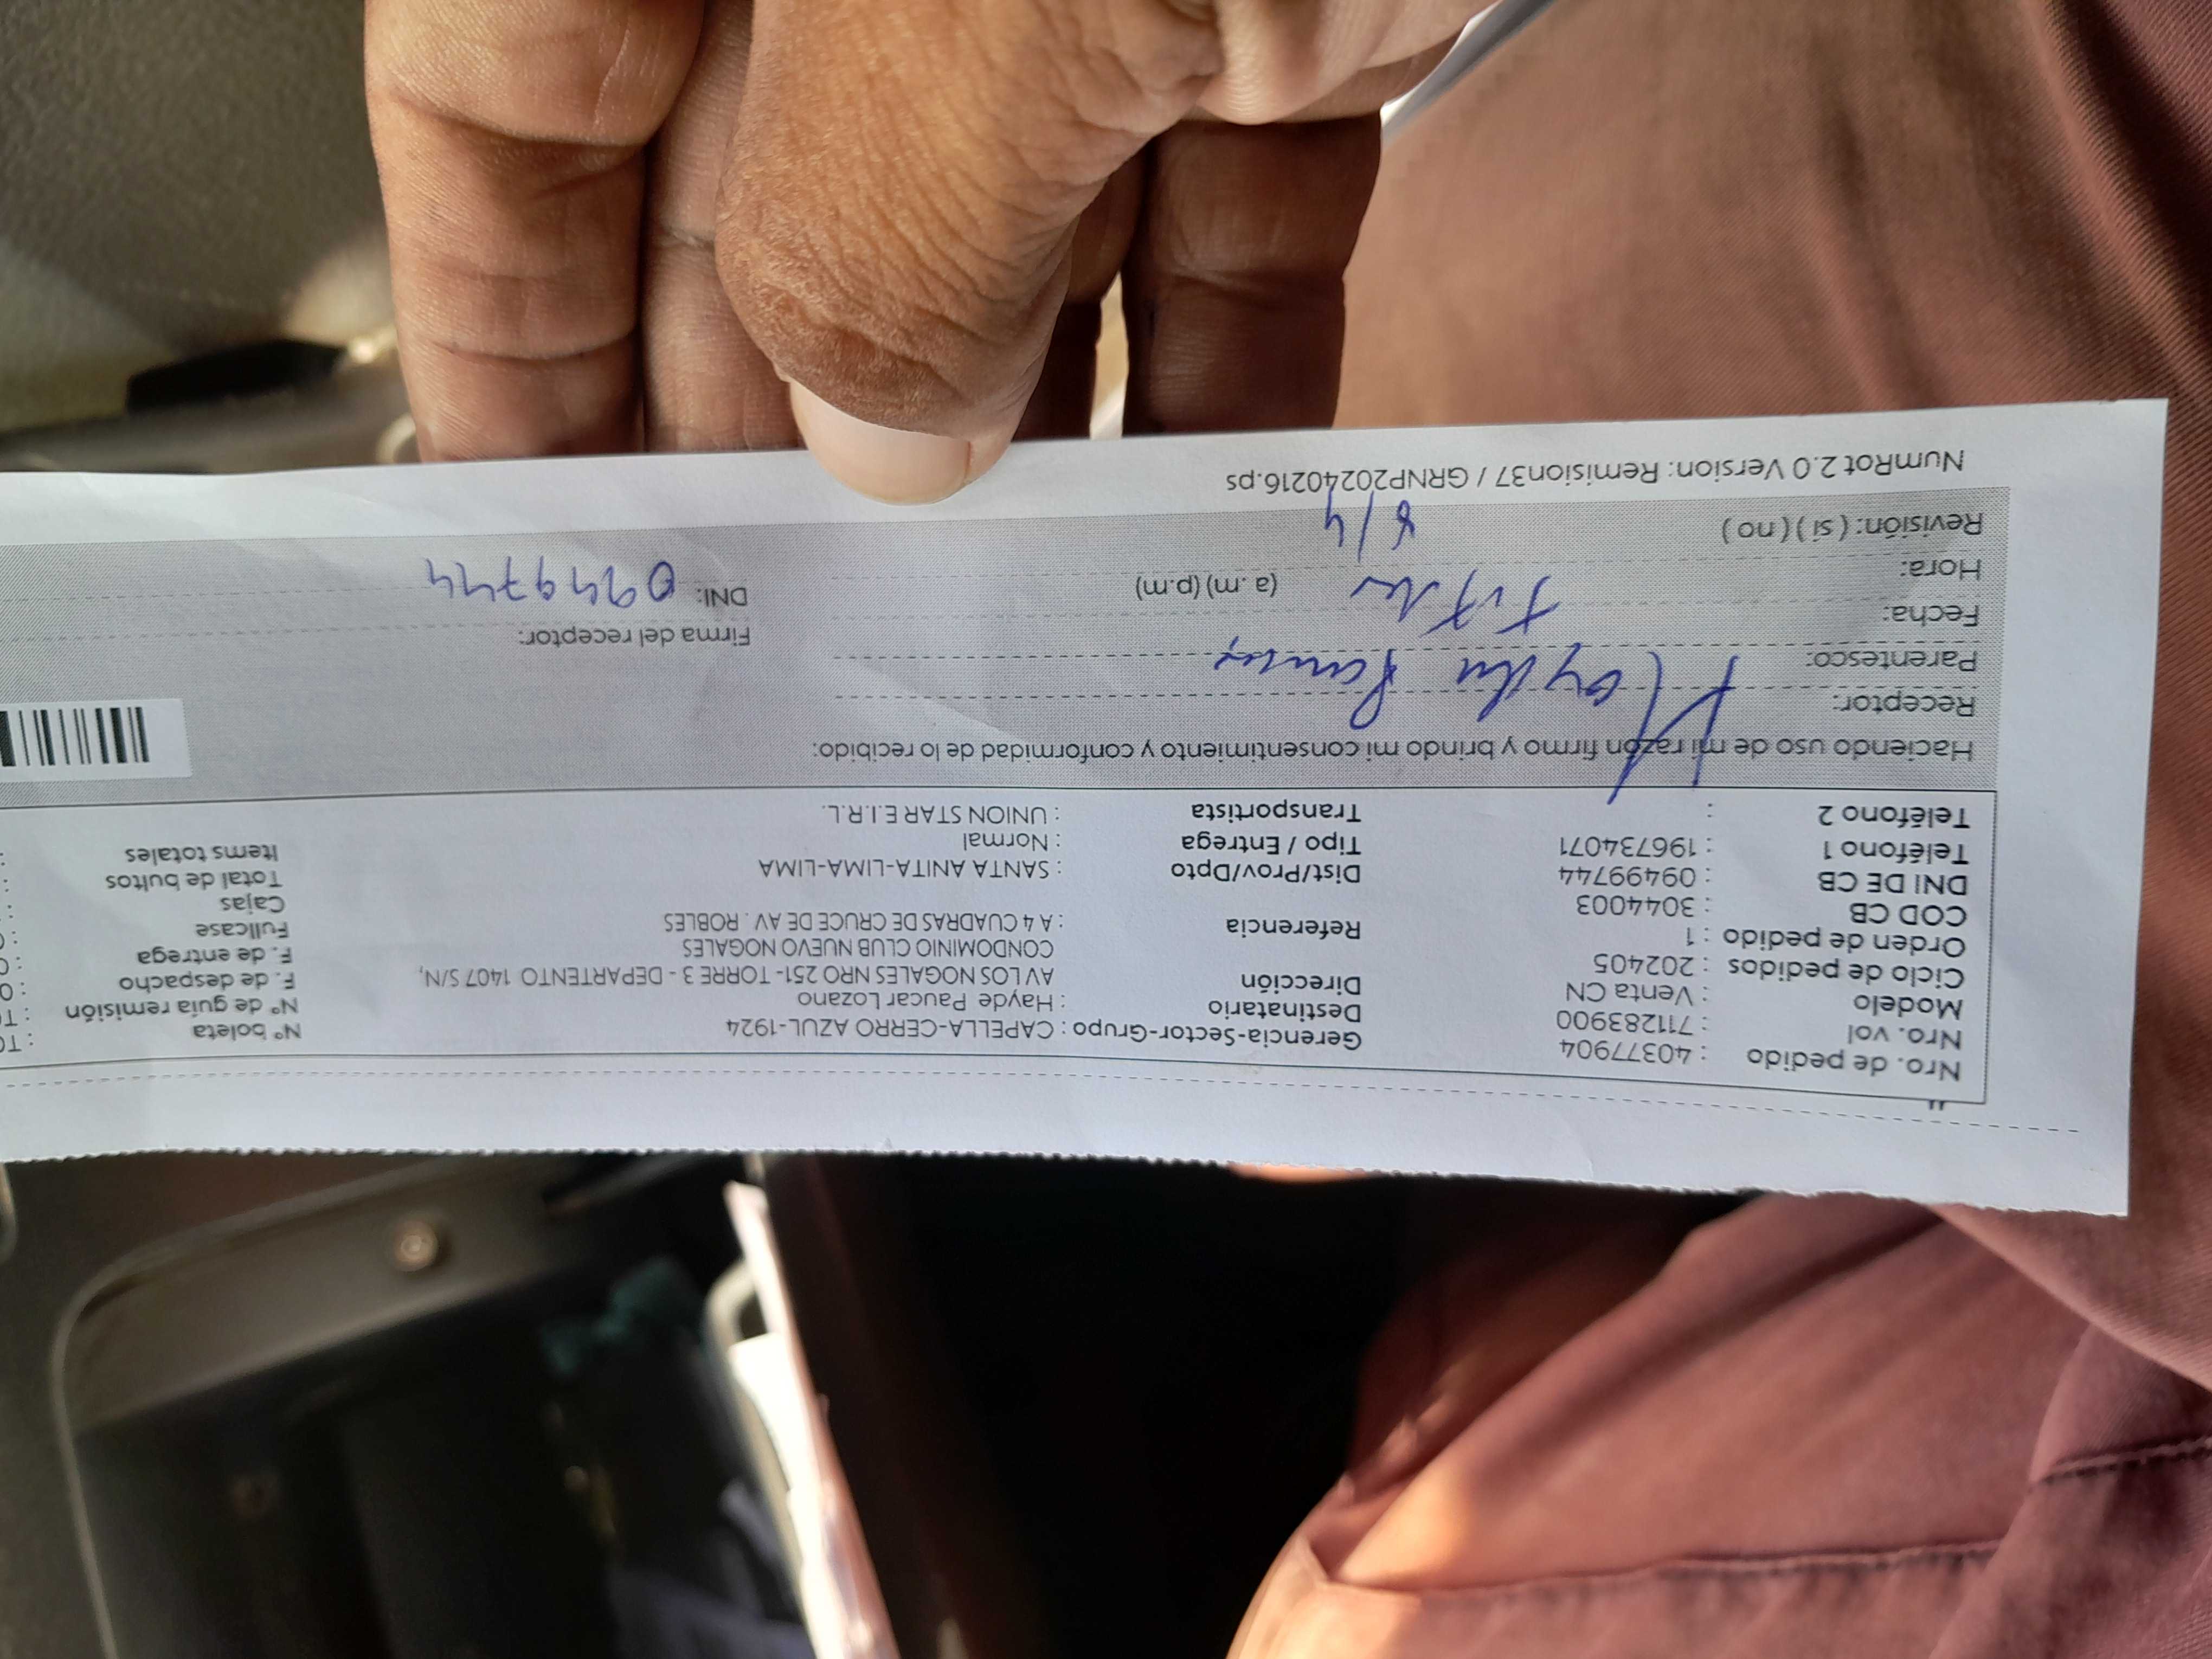 Nro. de pedido : 40377904
Nro. vol : 711283900
Modelo : Venta CN
Ciclo de pedidos : 202405
Orden de pedido : 1
COD CB : 3044003
DNI DE CB : 09499744
Teléfono 1 : 196734071
Teléfono 2 :
Gerencia-Sector-Grupo : CAPELLA-CERRO AZUL-1924
Destinatario : Hayde Paucar Lozano
Dirección AV LOS NOGALES NRO 251- TORRE 3 - DEPARTENTO 1407 S/N,
CONDOMINIO CLUB NUEVO NOGALES
Referencia : A 4 CUADRAS DE CRUCE DE AV . ROBLES
Dist/Prov/Dpto : SANTA ANITA-LIMA-LIMA
Tipo / Entrega : Normal
Transportista : UNION STAR E.I.R.L.
N° boleta :
N° de guía remisión :
F. de despacho :
F. de entrega :
Fullcase :
Cajas :
Total de bultos :
Items totales :
Haciendo uso de mi razón firmo y brindo mi consentimiento y conformidad de lo recibido:
Receptor:
Parentesco:
Fecha:
Hora: (a .m) (p.m)
Revisión: ( si ) ( no ) 8/4
Firma del receptor:
DNI:
NumRot 2.0 Version: Remision37 / GRNP20240216.ps